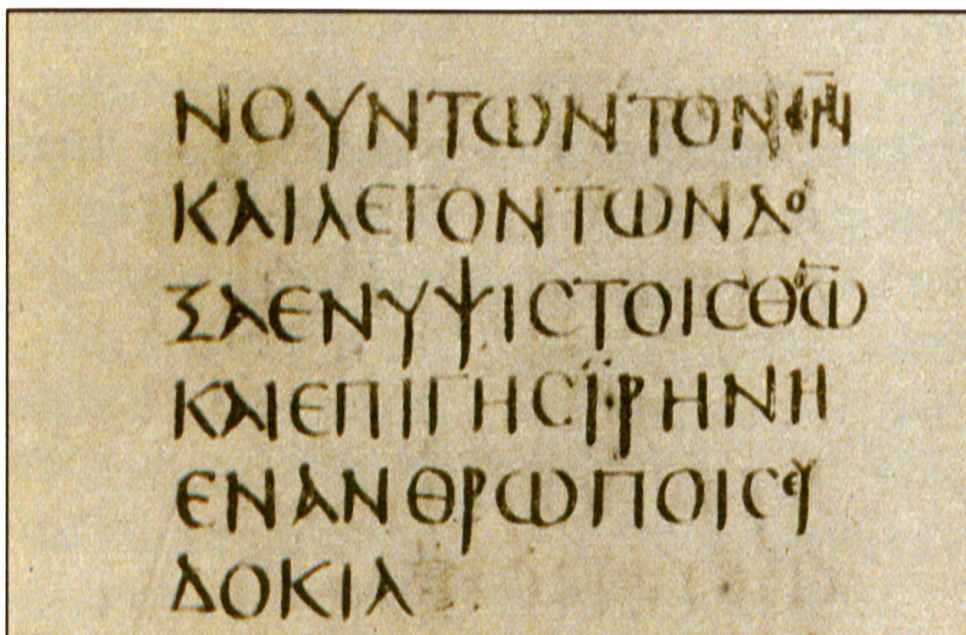 ΝΟΥΝΤΩΝΤΟΝ
ΚΑΙΛΕΓΟΝΤΩΝΔΟ
ΞΑΕΝΥΨΙϹΤΟΙϹΘΩ̅
ΚΑΙΕΠΙΓΗϹΪΡΗΝΗ
ΕΝΑΝΘΡΩΠΟΙϹΕΥ
ΔΟΚΙΑ